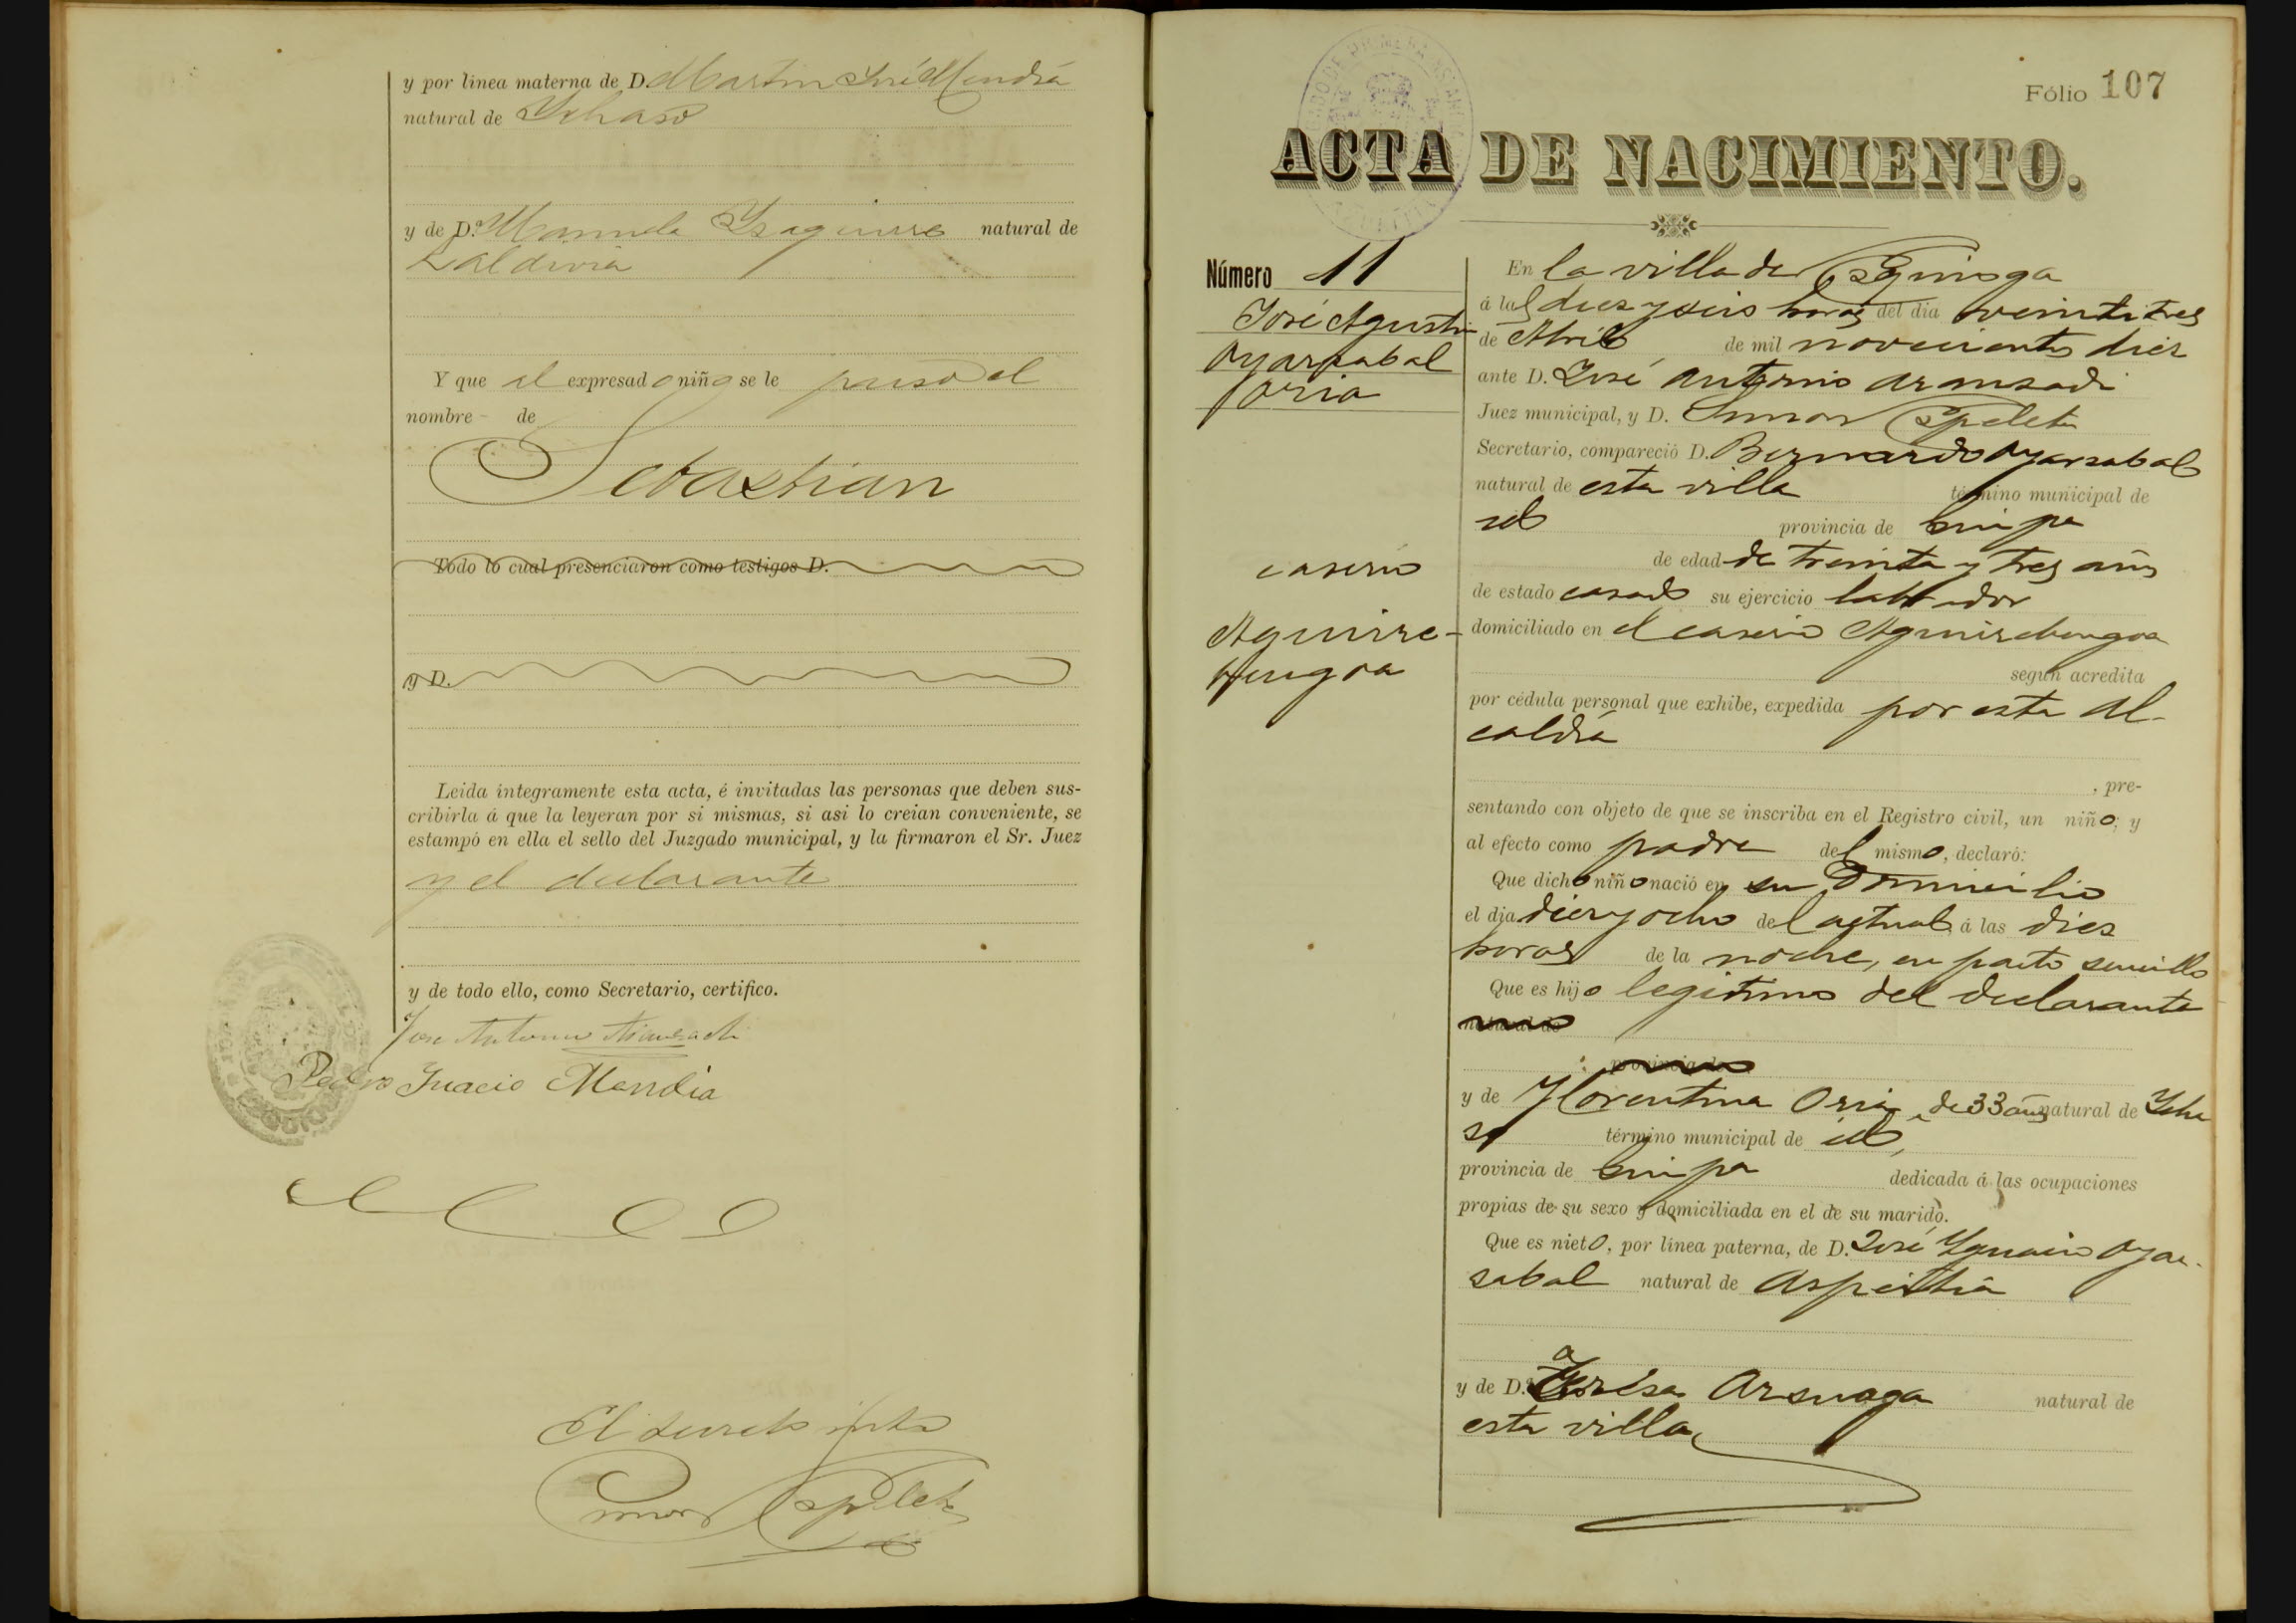 y por línea materna de D. Martin José Mendia
natural de Ychaso
y de D.ª Manuela Yzaguirre natural de
Zaldivia
Y que al expresado niño se le puso el
nombre de
Sebastian
Todo lo cual presenciaron como testigos D.
y D.
Leida íntegramente esta acta, é invitadas las personas que deben sus-
cribirla á que la leyeran por si mismas, si asi lo creian conveniente, se
estampó en ella el sello del Juzgado municipal, y la firmaron el Sr. Juez
y el declarante
y de todo ello, como Secretario, certifico.
José Antonio Aramsadi
Pedro Ynacio Mendia
El secreto
Fólio 107
ACTA DE NACIMIENTO.
Número 11
José Agustin
Oyarzabal
y Oria
caserio
Aguirre-
bengoa
En la villa de Ezquioga
á las diez y seis horas del dia veintitres
de Abril de mil novecientos diez
ante D. José Antonio Aramsadi
Juez municipal, y D. Ezpeleta
Secretario, compareció D. Bernardo Oyarzabal
natural de esta villa término municipal de
id provincia de Guipa
de edad de treinta y tres años
de estado casado su ejercicio labrador
domiciliado en el caserio Aguirrebengoa
según acredita
por cédula personal que exhibe, expedida por esta Al-
caldia
, pre-
sentando con objeto de que se inscriba en el Registro civil, un niño; y
al efecto como padre del mismo, declaró:
Que dicho niño nació en su Domicilio
el dia diez y ocho del actual á las diez
horas de la noche, en parto sencillo
Que es hijo legitimo del declarante
natural de
provincia de
y de Florentina Oria, de 33 años natural de Ycha
so término municipal de id,
provincia de Guipa dedicada á las ocupaciones
propias de su sexo y domiciliada en el de su marido.
Que es nieto, por línea paterna, de D. José Ygnacio Oyar-
zabal natural de Aspeitia
y de D.ª Teresa Arsuaga natural de
esta villa